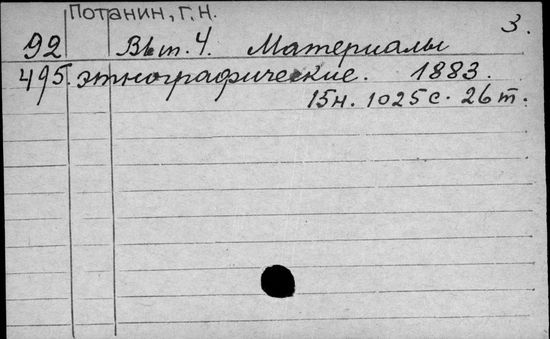 Потанин, Г.Н.
3.
92 Вып. 4. Материалы
495. этнографические. 1883.
15н. 1025 с. 26 т.